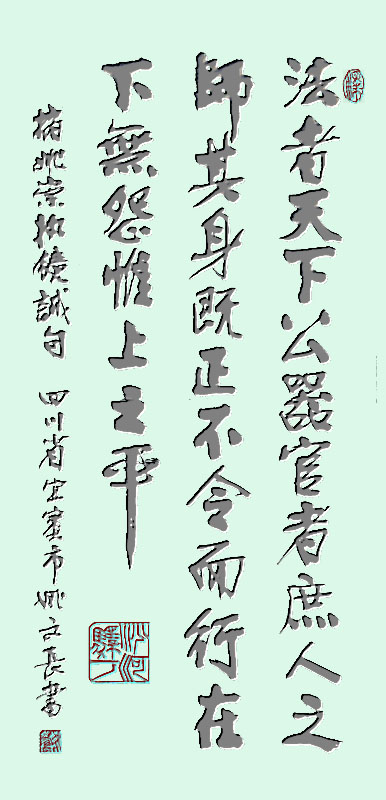 法者天下公器官者庶人之
師其身既正不令而行在
下無怨惟上之平
摘姚崇執鏡誡句 四川省宜賓市姚文長書
沙河驛丁